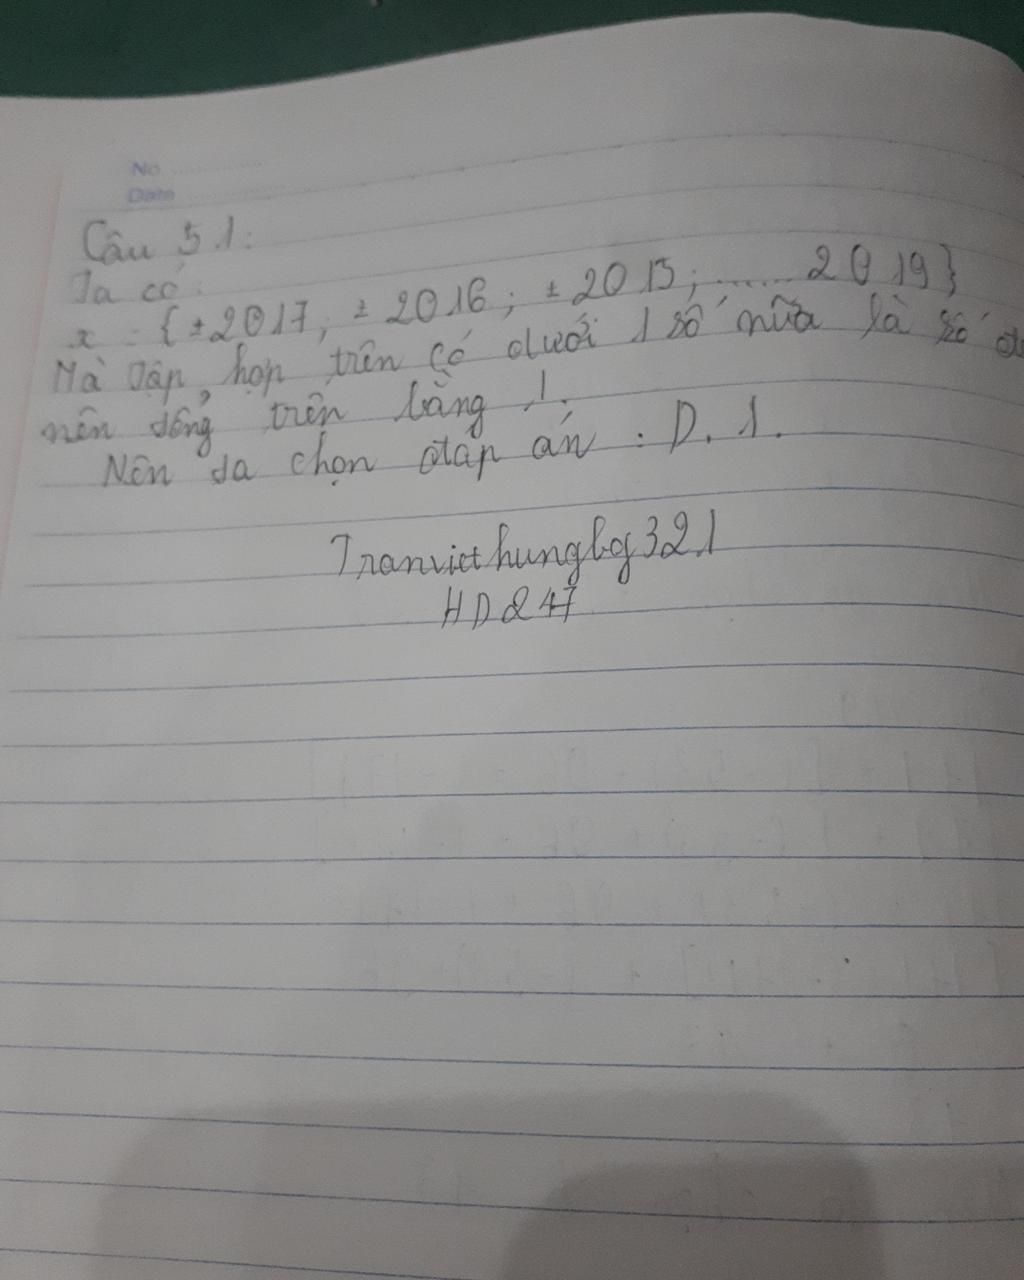 No
Date
Câu 51:
Ta có:
x = {±2017; ±2016; ±2015; ...... 2019}
Mà tập hợp trên có dưới 1 số nữa là số
nên tổng trên bằng 1.
Nên ta chọn đáp án : D. 1.
Tranviethungbg321
HD247